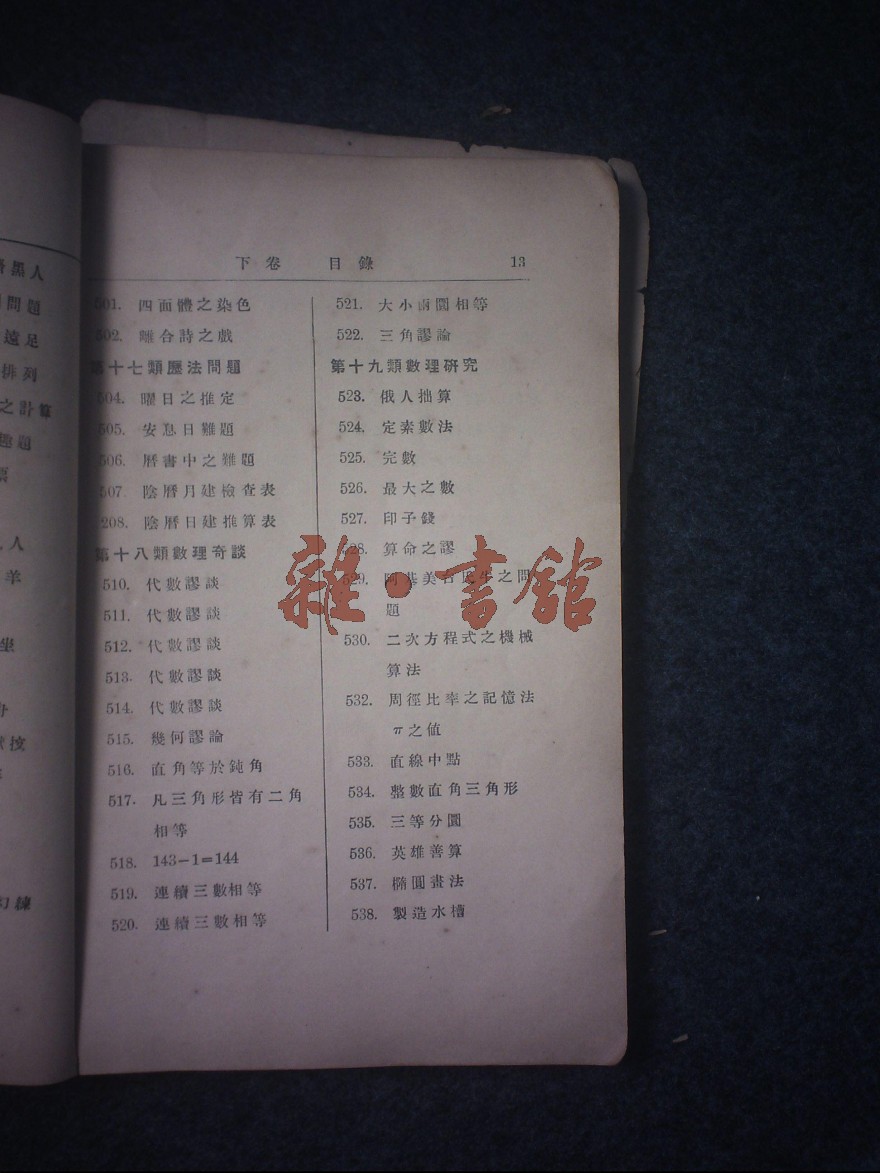 黑人
問題
遠足
排列
之計算
趣題
人
羊
坐
練
下卷 目錄 13
501. 四面體之染色
502. 離合詩之戲
第十七類歷法問題
504. 曜日之推定
505. 安息日難題
506. 曆書中之難題
507. 陰曆月建檢查表
208. 陰曆日建推算表
第十八類數理奇談
510. 代數謬談
511. 代數謬談
512. 代數謬談
513. 代數謬談
514. 代數謬談
515. 幾何謬論
516. 直角等於鈍角
517. 凡三角形皆有二角
相等
518. 143-1=144
519. 連續三數相等
520. 連續三數相等
521. 大小兩圓相等
522. 三角謬論
第十九類數理研究
523. 俄人拙算
524. 定素數法
525. 完數
526. 最大之數
527. 印子錢
528. 算命之謬
529. 之問
題
530. 二次方程式之機械
算法
532. 周徑比率之記憶法
π之值
533. 直線中點
534. 整數直角三角形
535. 三等分圓
536. 英雄善算
537. 橢圓畫法
538. 製造水槽
雜·書館